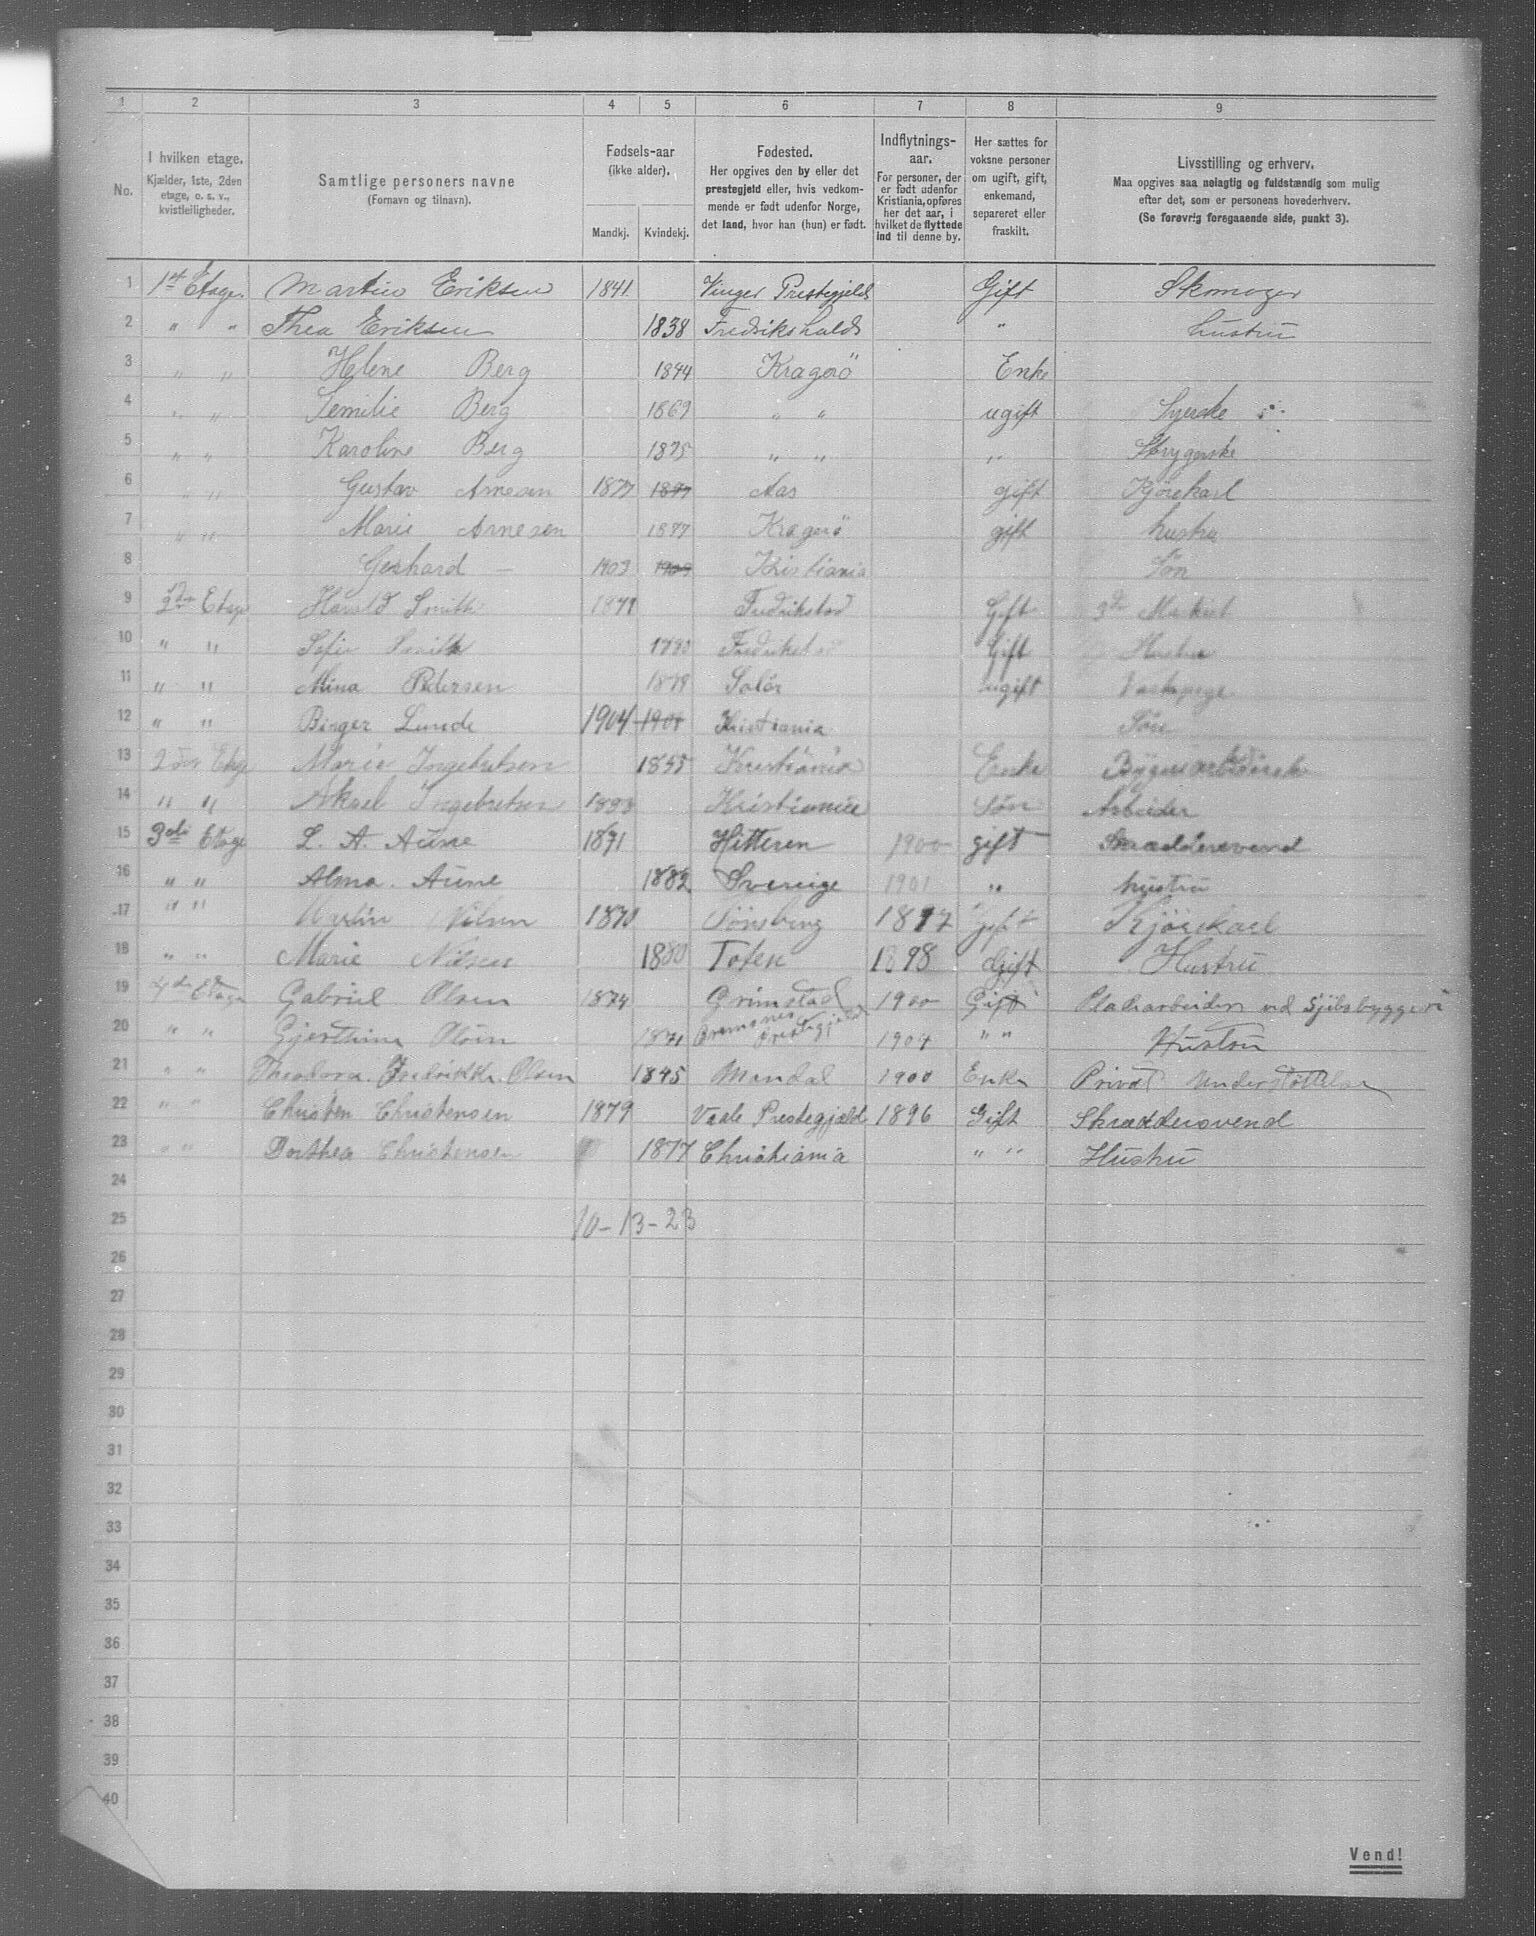 1 2 3 4 5 6 7 8 9
No.
I hvilken etage.
Kjælder, 1ste, 2den
etage, o. s. v.,
kvistleiligheder.
Samtlige personers navne
(Fornavn og tilnavn).
Fødsels-aar
(ikke alder).
Mandkj. Kvindekj.
Fødested.
Her opgives den by eller det
prestegjeld eller, hvis vedkom-
mende er født udenfor Norge,
det land, hvor han (hun) er født.
Indflytnings-
aar.
For personer, der
er født udenfor
Kristiania, opføres
her det aar, i
hvilket de flyttede
ind til denne by.
Her sættes for
voksne personer
om ugift, gift,
enkemand,
separeret eller
fraskilt.
Livsstilling og erhverv.
Maa opgives saa nøiagtig og fuldstændig som mulig
efter det, som er personens hovederhverv.
(Se forøvrig foregaaende side, punkt 3).
1 1st Etage. Martin Eriksen 1841. Vinger Prestegjeld Gift Skomager
2 " " Thea Eriksen 1838 Fredrikshald " hustru
3 " " Helene Berg 1844 Kragerö Enke
4 " " Berg 1869 " " ugift Syerske
5 " " Karoline Berg 1875 " " " Strygerske
6 " " Gustav Arnesen 1877 Aas gift Kjörekarl
7 " " Marie Arnesen 1877 Kragerö gift hustru
8 Gerhard — 1903 Kristiania Sön
9 2den Etage Harald Smith Fredrikstad Gift 3die
10 " " Sofie Smith Fredrikstad Gift Hustru
11 " " Mina Pedersen 1879 Solör ugift
12 " " Birger Lunde 1904 Kristiania Sön
13 2den Etage Marie Ingebretsen 1855 Kristiania Enke
14 " " Aksel Ingebretsen Kristiania Sön Arbeider
15 3die Etage L. A. Aune 1871 Hitteren 1900 gift Skræddersvend
16 " " Alma. Aune 1882 Sverige 1901 " hustru
17 " " Martin Nilsen 1870 Tönsberg 1897 Gift Kjörekarl
18 " " Marie Nilsen 1880 Toten 1898 Gift Hustru
19 4de Etage Gabriel Olsen 1874 Grimstad 1900 Gift Pladearbeider ved Skibsbyggeri
20 " " Olsen 1871 Bremsnes Prestegjeld 1904 " " Hustru
21 " " Theodora. Fredrikke. Olsen 1845 Mandal 1900 Enke Privat Understöttelse
22 " " Christen Christensen 1879 Vaale Prestegjæld 1896 Gift Skræddersvend
23 " " Dorthea Christensen 1877 Christiania " " Hustru
24
25 10-13-23
26
27
28
29
30
31
32
33
34
35
36
37
38
39
40
Vend!